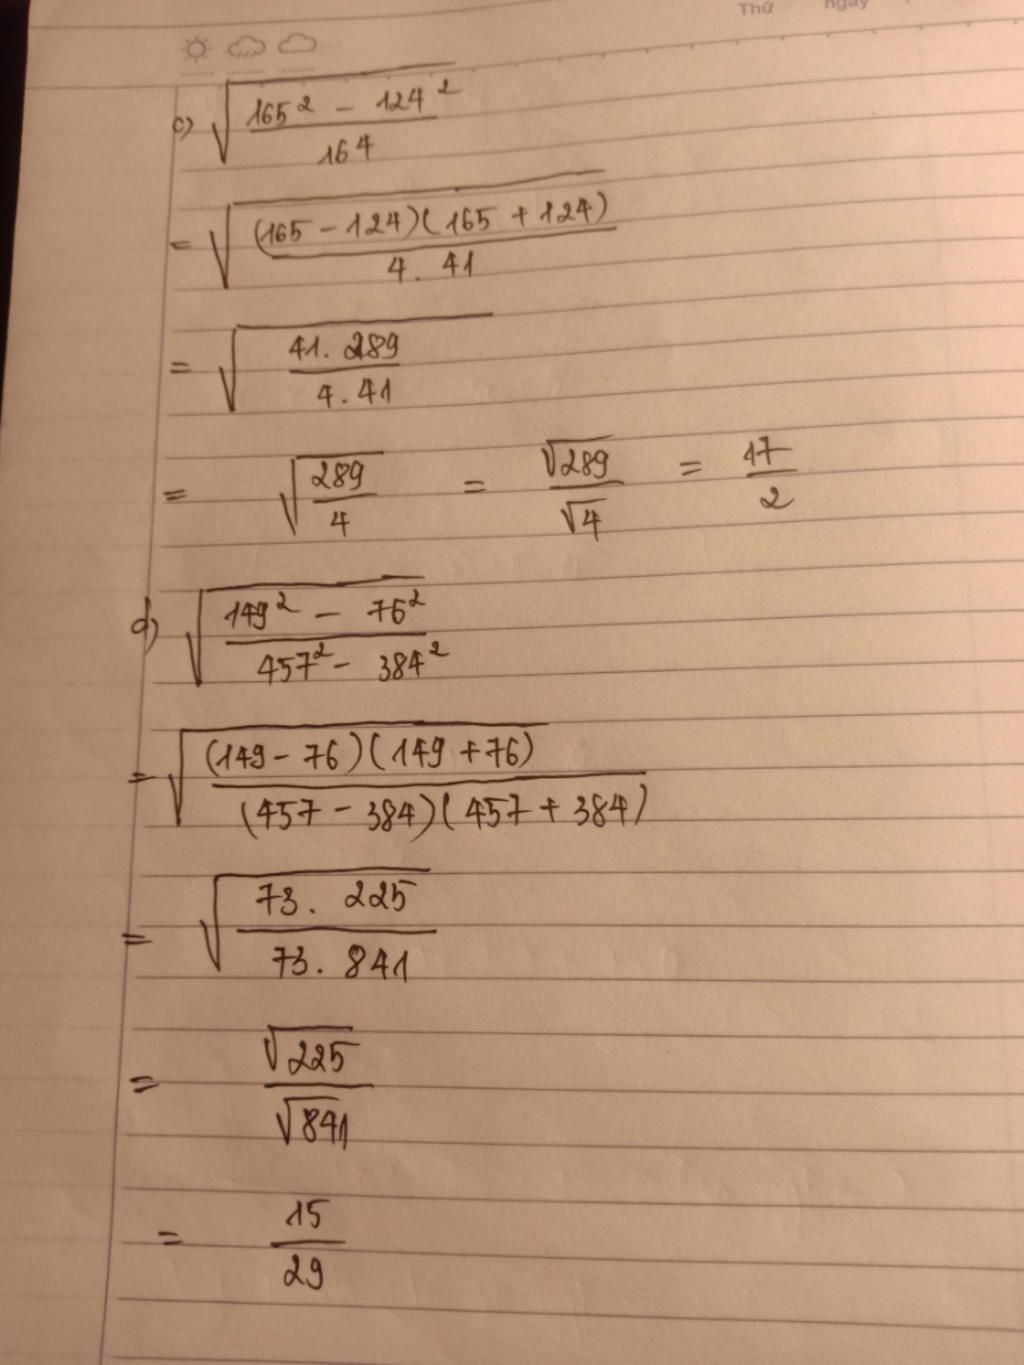 Thứ ngày
c) √((165² - 124²)/164)
= √(((165 - 124)(165 + 124))/(4 . 41))
= √((41. 289)/(4. 41))
= √(289/4) = √289/√4 = 17/2
d) √((149² - 76²)/(457² - 384²))
= √(((149 - 76)(149 + 76))/((457 - 384)(457 + 384)))
= √((73. 225)/(73. 841))
= √225/√841
= 15/29